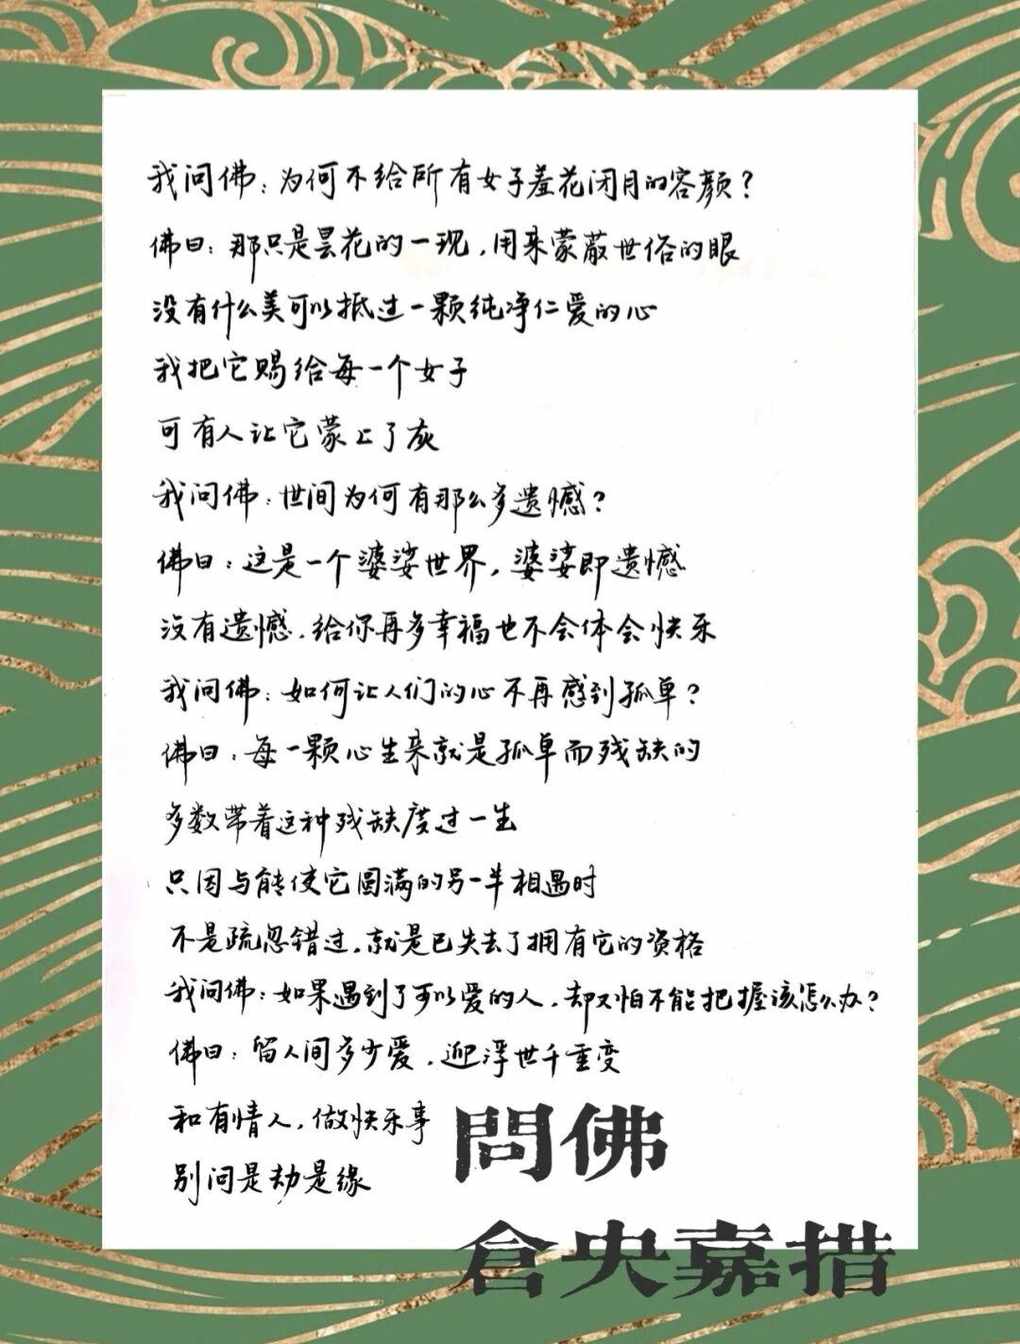 我问佛：为何不给所有女子羞花闭月的容颜？
佛曰：那只是昙花的一现，用来蒙蔽世俗的眼
没有什么美可以抵过一颗纯净仁爱的心
我把它赐给每一个女子
可有人让它蒙上了灰
我问佛：世间为何有那么多遗憾？
佛曰：这是一个婆娑世界，婆娑即遗憾
没有遗憾，给你再多幸福也不会体会快乐
我问佛：如何让人们的心不再感到孤单？
佛曰：每一颗心生来就是孤单而残缺的
多数带着这种残缺度过一生
只因与能使它圆满的另一半相遇时
不是疏忽错过，就是已失去了拥有它的资格
我问佛：如果遇到了可以爱的人，却又怕不能把握该怎么办？
佛曰：留人间多少爱，迎浮世千重变
和有情人，做快乐事
别问是劫是缘
問佛
倉央嘉措